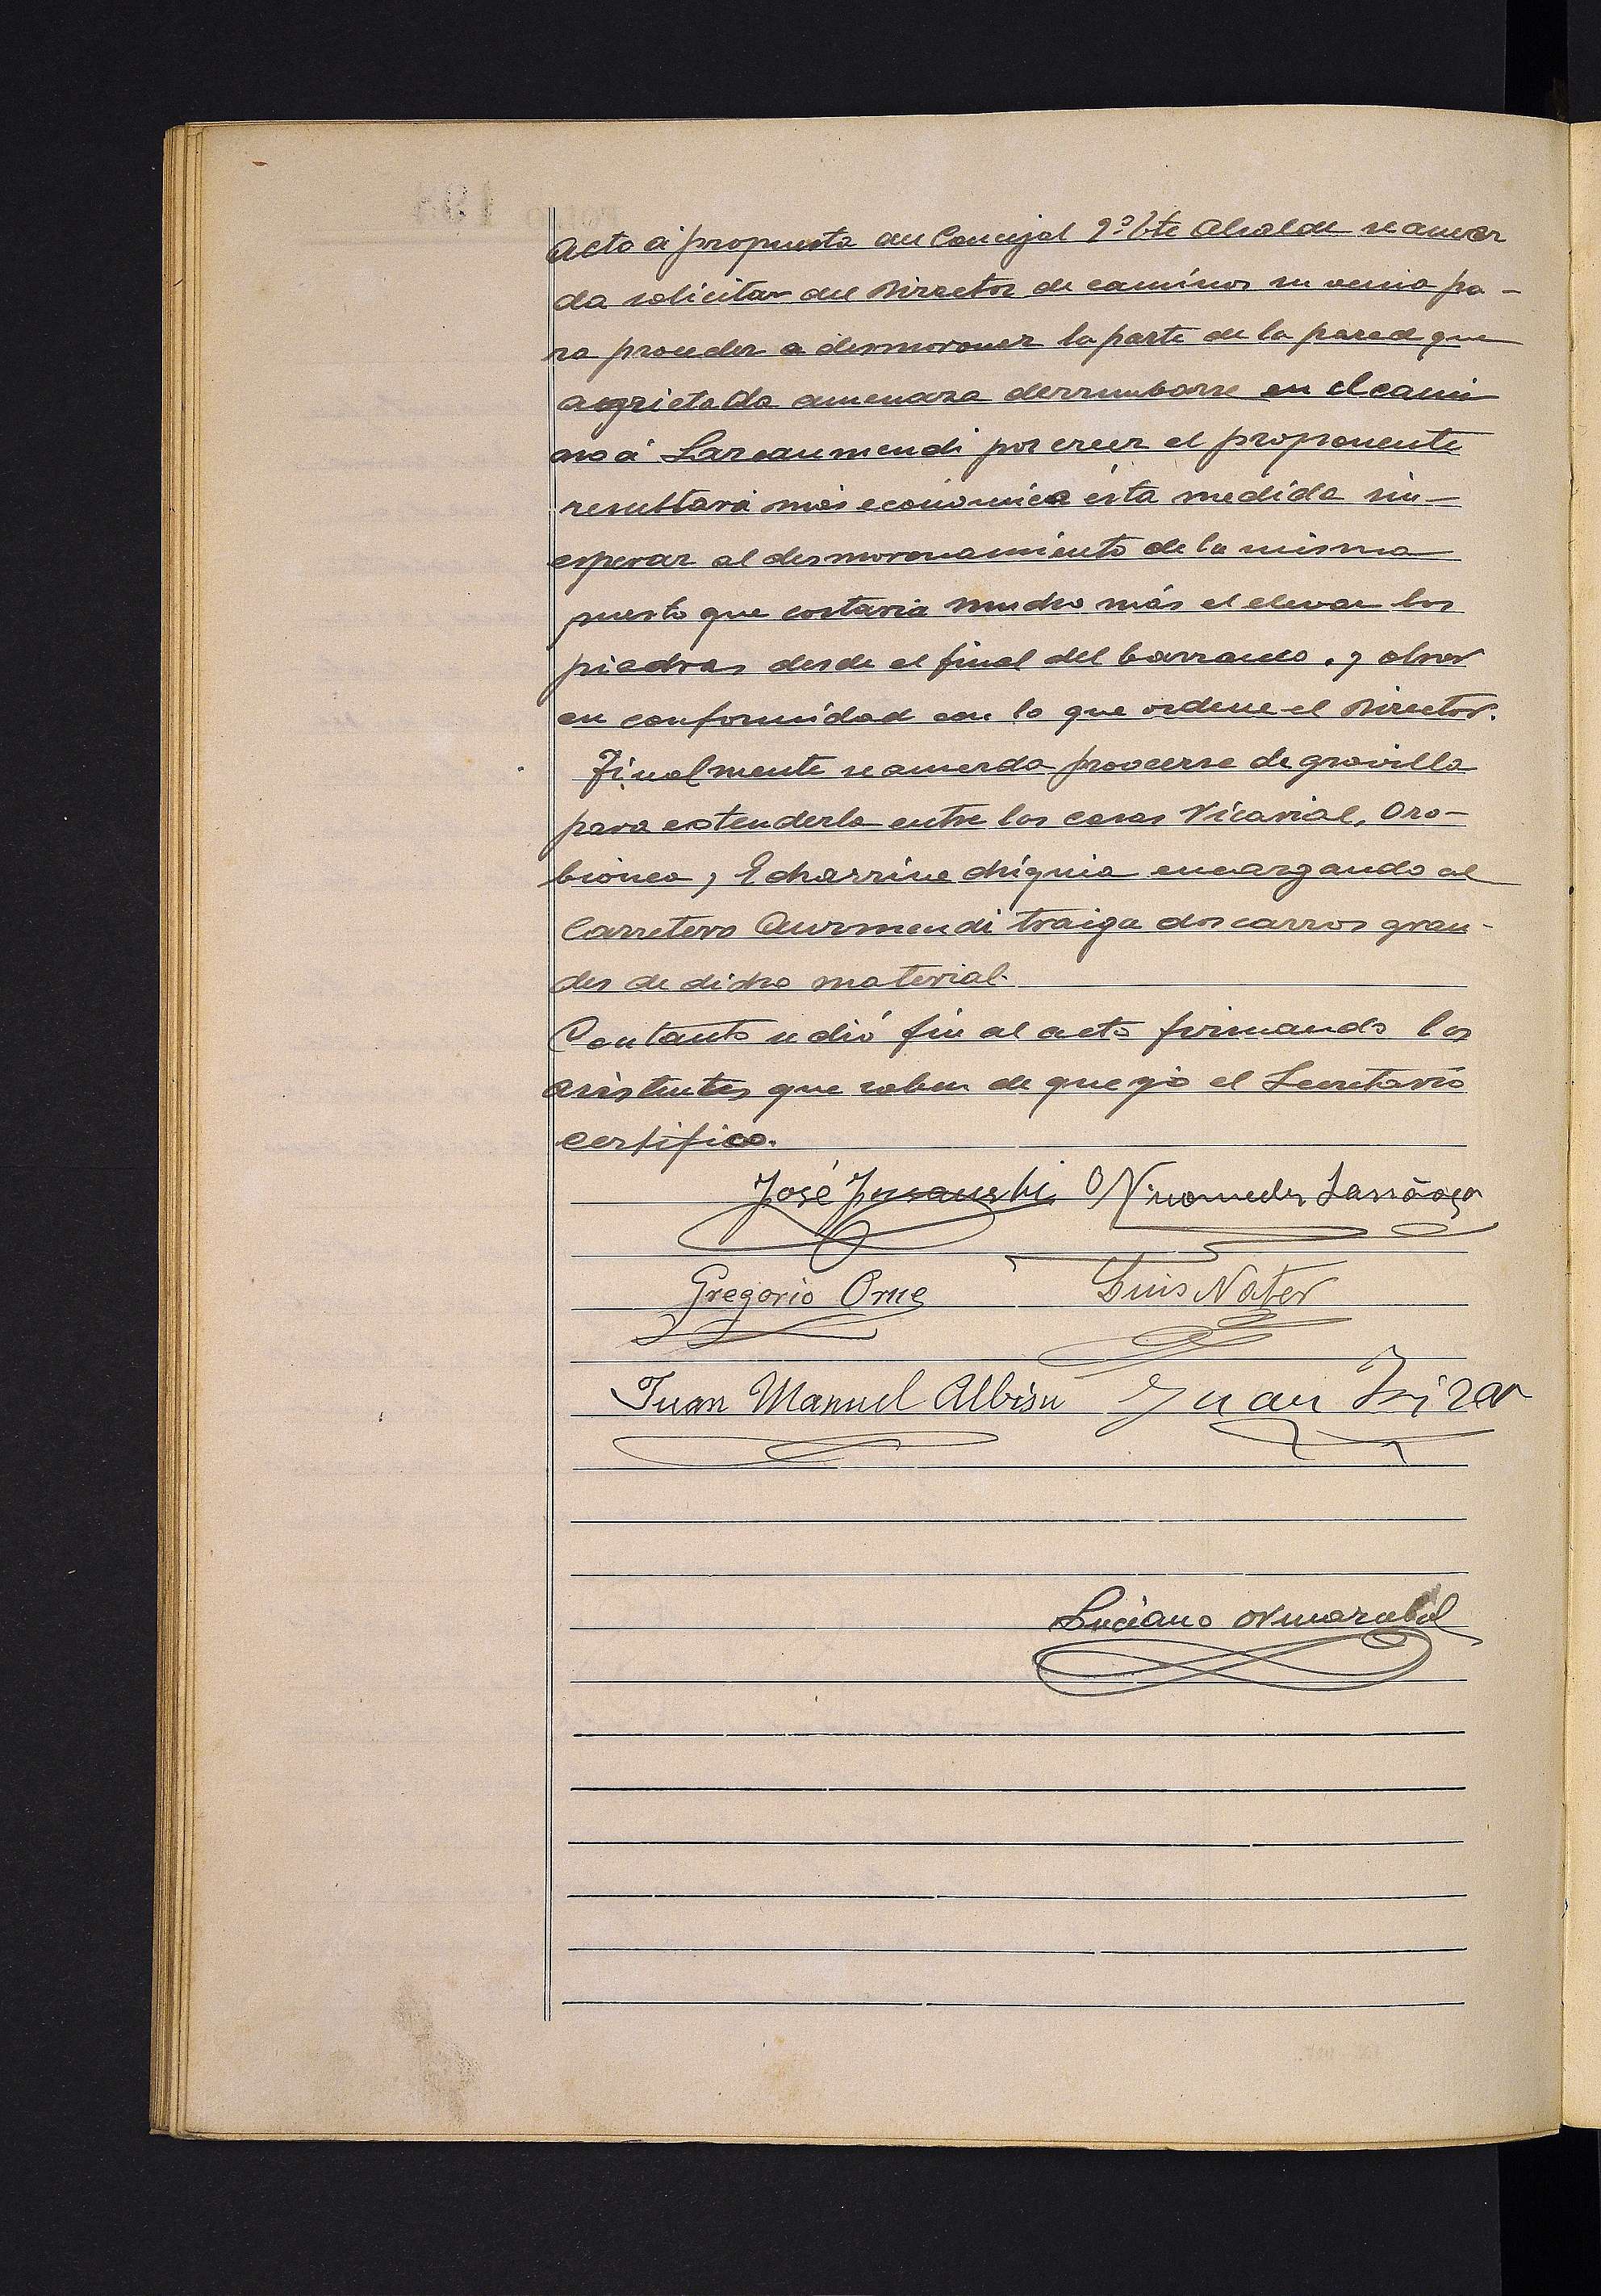 acto á propuesta del Concejal 2º tte Alcalde se acuer
da solicitar del Director de caminos su venia pa-
ra proceder a desmoronar la parte de la pared que
agrietada amenaza derrumbarse en el cami
no á Larraumendi por creer el proponente
resultará más económica ésta medida sin-
esperar al desmoronamiento de la misma
puesto que costaria mucho más el elevar las
piedras desde el final del barranco, y obrar
en conformidad con lo que ordene el Director.
Finalmente se acuerda proveerse de gravilla
para extenderla entre las casas Vicarial, Oro-
bionea, y Echarrine chiquia encargando al
Carretero Aurmendi traiga dos carros gran-
des de dicho material.
Con tanto se dió fin al acto firmando los
asistentes que saben de que yó el Secretario
certifico.
José Nicomedes Larrãaga
Gregorio Orue Luis Nater
Juan Manuel Albisu Juan Irizar
Luciano